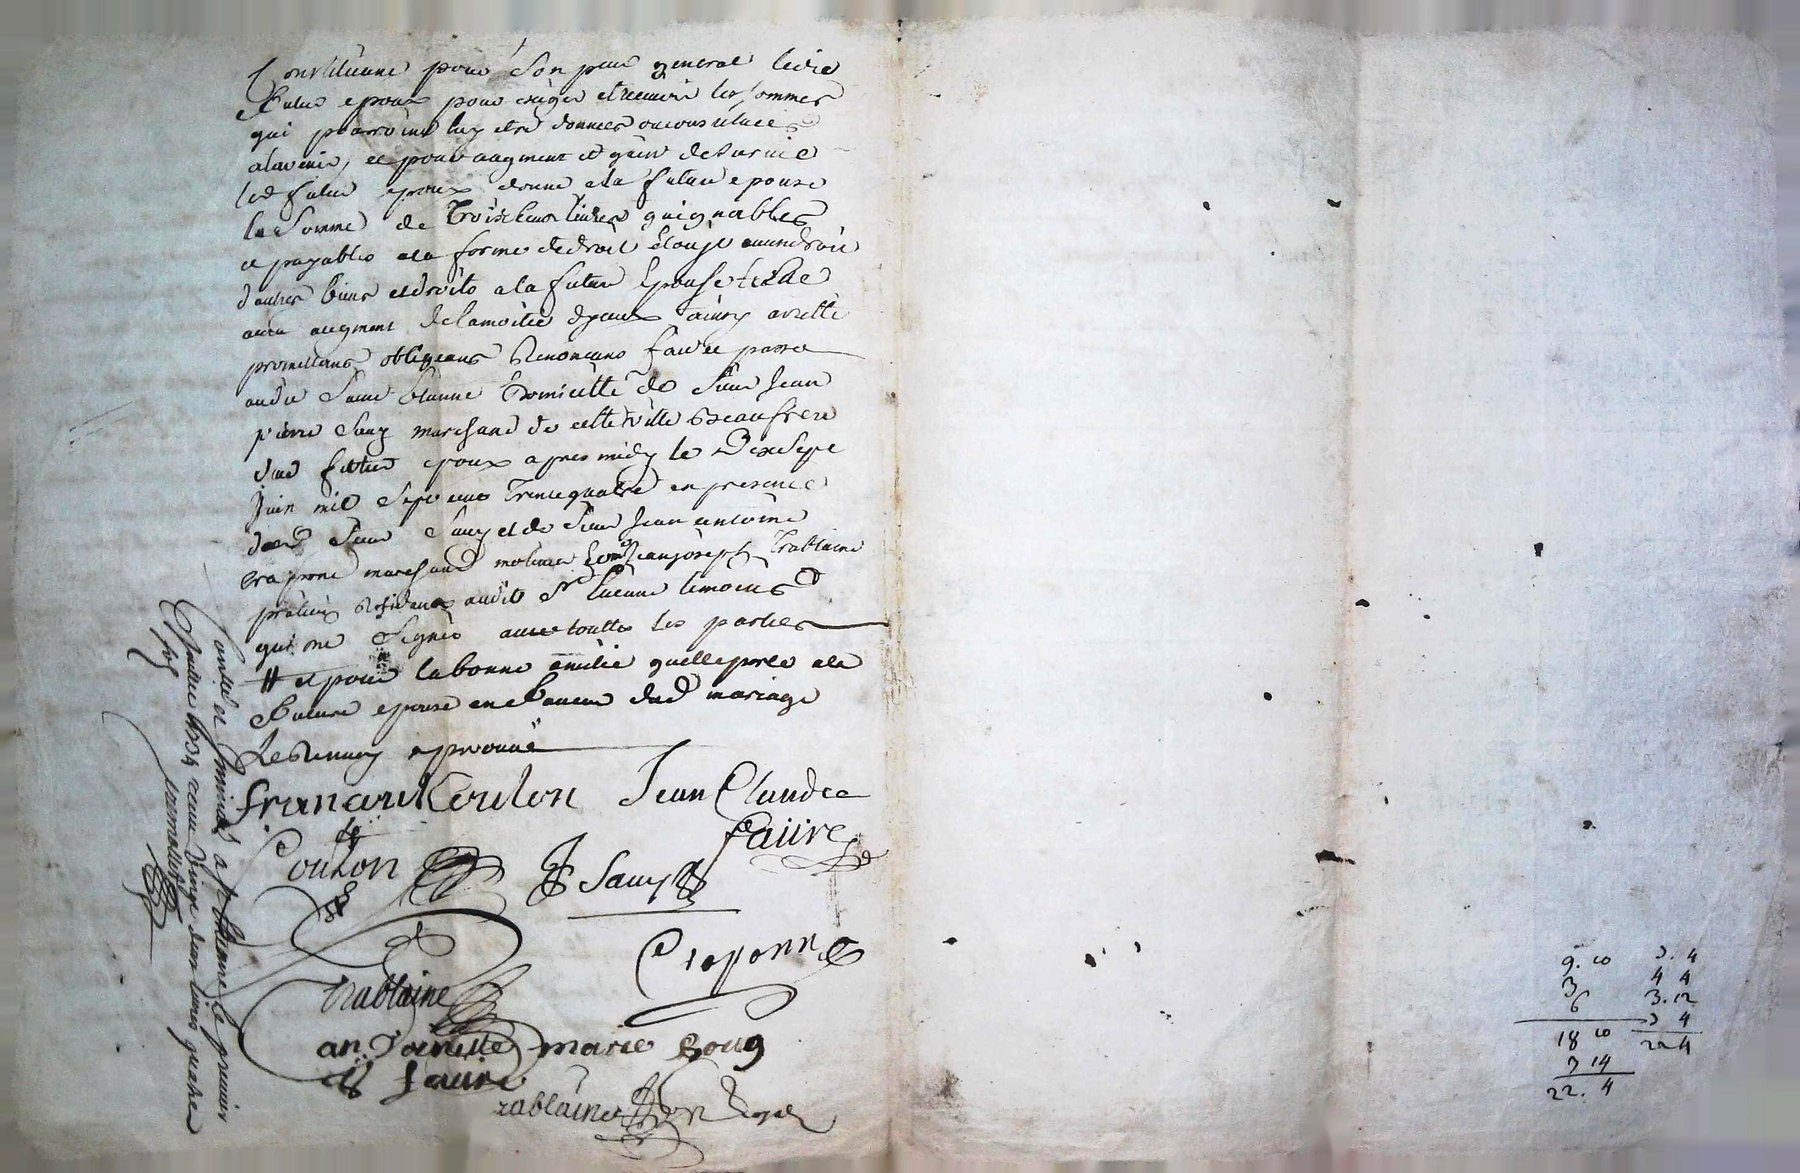 Constituant pour son pro general led
futur epoux pour exiger et recevoir les sommes
qui pourroint luy etre donnees ou constituées
alavenir, et pour augment et gain de survie
led futur epoux donne ala future epouse
la somme de Trois Cent livres gaignables
et payables ala forme de droit
d'autres biens et droits ala future Epouse
aura augment delamoitié ainsy arretté
promettant obligeant Renonçant fait et passé
audit Saint Etienne Domicille de Sieur Jean
pierre Sauy marchand de cette ville Beaufrere
dud futur epoux apres midy le Dixsept
Juin mil sept cent Trente quatre en presence
dud Sieur Sauy et de Sieur Jean antoine
Crapone marchand et Jean joseph Trablaine
praticien Residants audit St Etienne temoins
qui ont Signés avec touttes les parties
# et pour la bonne amitié quelle porte ala
future epouse en faveur dud mariage
le Renvoy aprouvé
francois Coulon Jean Claude
faure
Coulon Sauy
Craponne
trablaine
antoinette marie Souy
faure
trablaine
Controllé et Insinué a St Etienne le premier
Juillet 1734 receu vingt deux livres quatre
sols
9. 10
3
6
18 10
3 14
22. 4
3. 4
4 4
3. 12
3 4
22 4